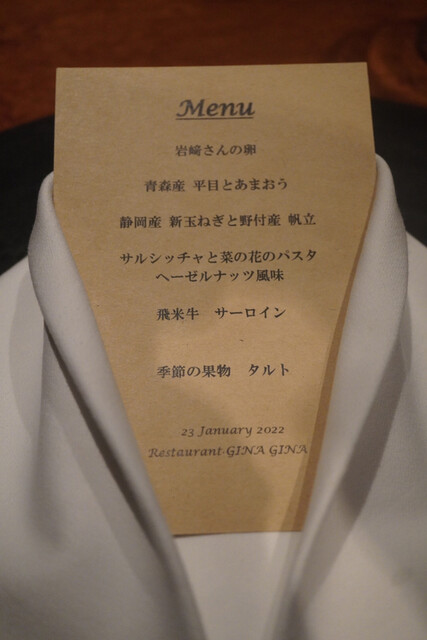 Menu
岩﨑さんの卵
青森産 平目とあまおう
静岡産 新玉ねぎと野付産 帆立
サルシッチャと菜の花のパスタ
ヘーゼルナッツ風味
飛米牛 サーロイン
季節の果物 タルト
23 January 2022
Restaurant GINA GINA